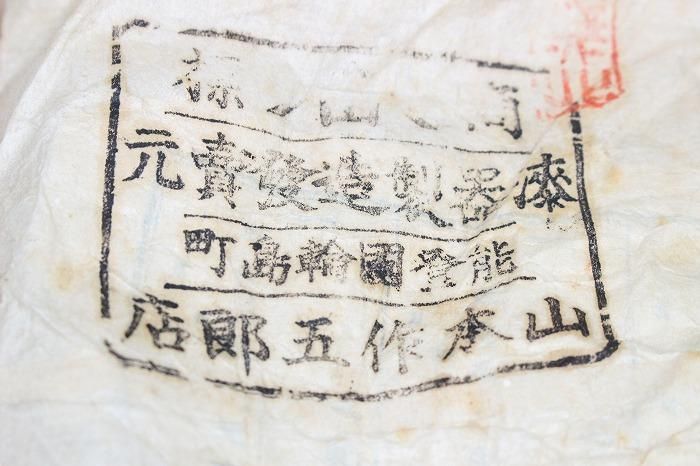 標
漆器製造發賣元
能登國輪島町
山本作五郎店